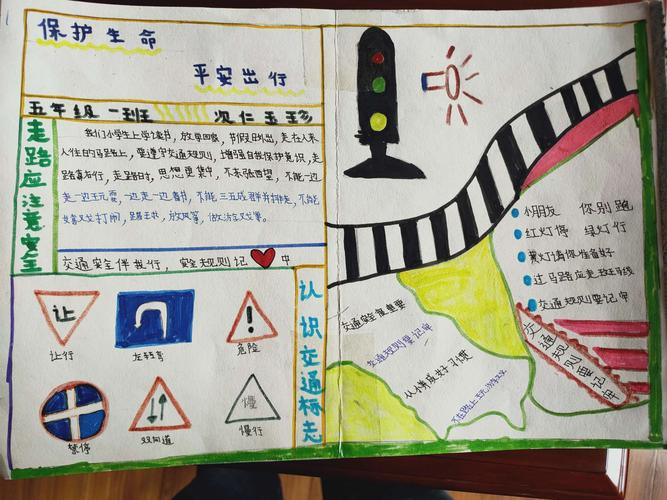 保护生命
平安出行
五年级 一班
次仁玉珍
走路应注意安全
我们小学生上学读书，放学回家，节假日外出，走在人来
人往的马路上，要遵守交通规则，增强自我保护意识，走
路靠右行，走路时，思想要集中，不东张西望，不能一边
走一边玩耍，一边走一边看书，不能三五成群并排走，不能
追逐打闹
交通安全伴我行，安全规则记中
让
让行
左转弯
!
危险
禁停
双向道
慢
慢行
认识交通标志
小朋友 你别跑
红灯停 绿灯行
黄灯请你准备好
过马路应走斑马线
交通规则要记牢
交通安全很重要
交通规则要记牢
从小养成好习惯
交通规则要记牢